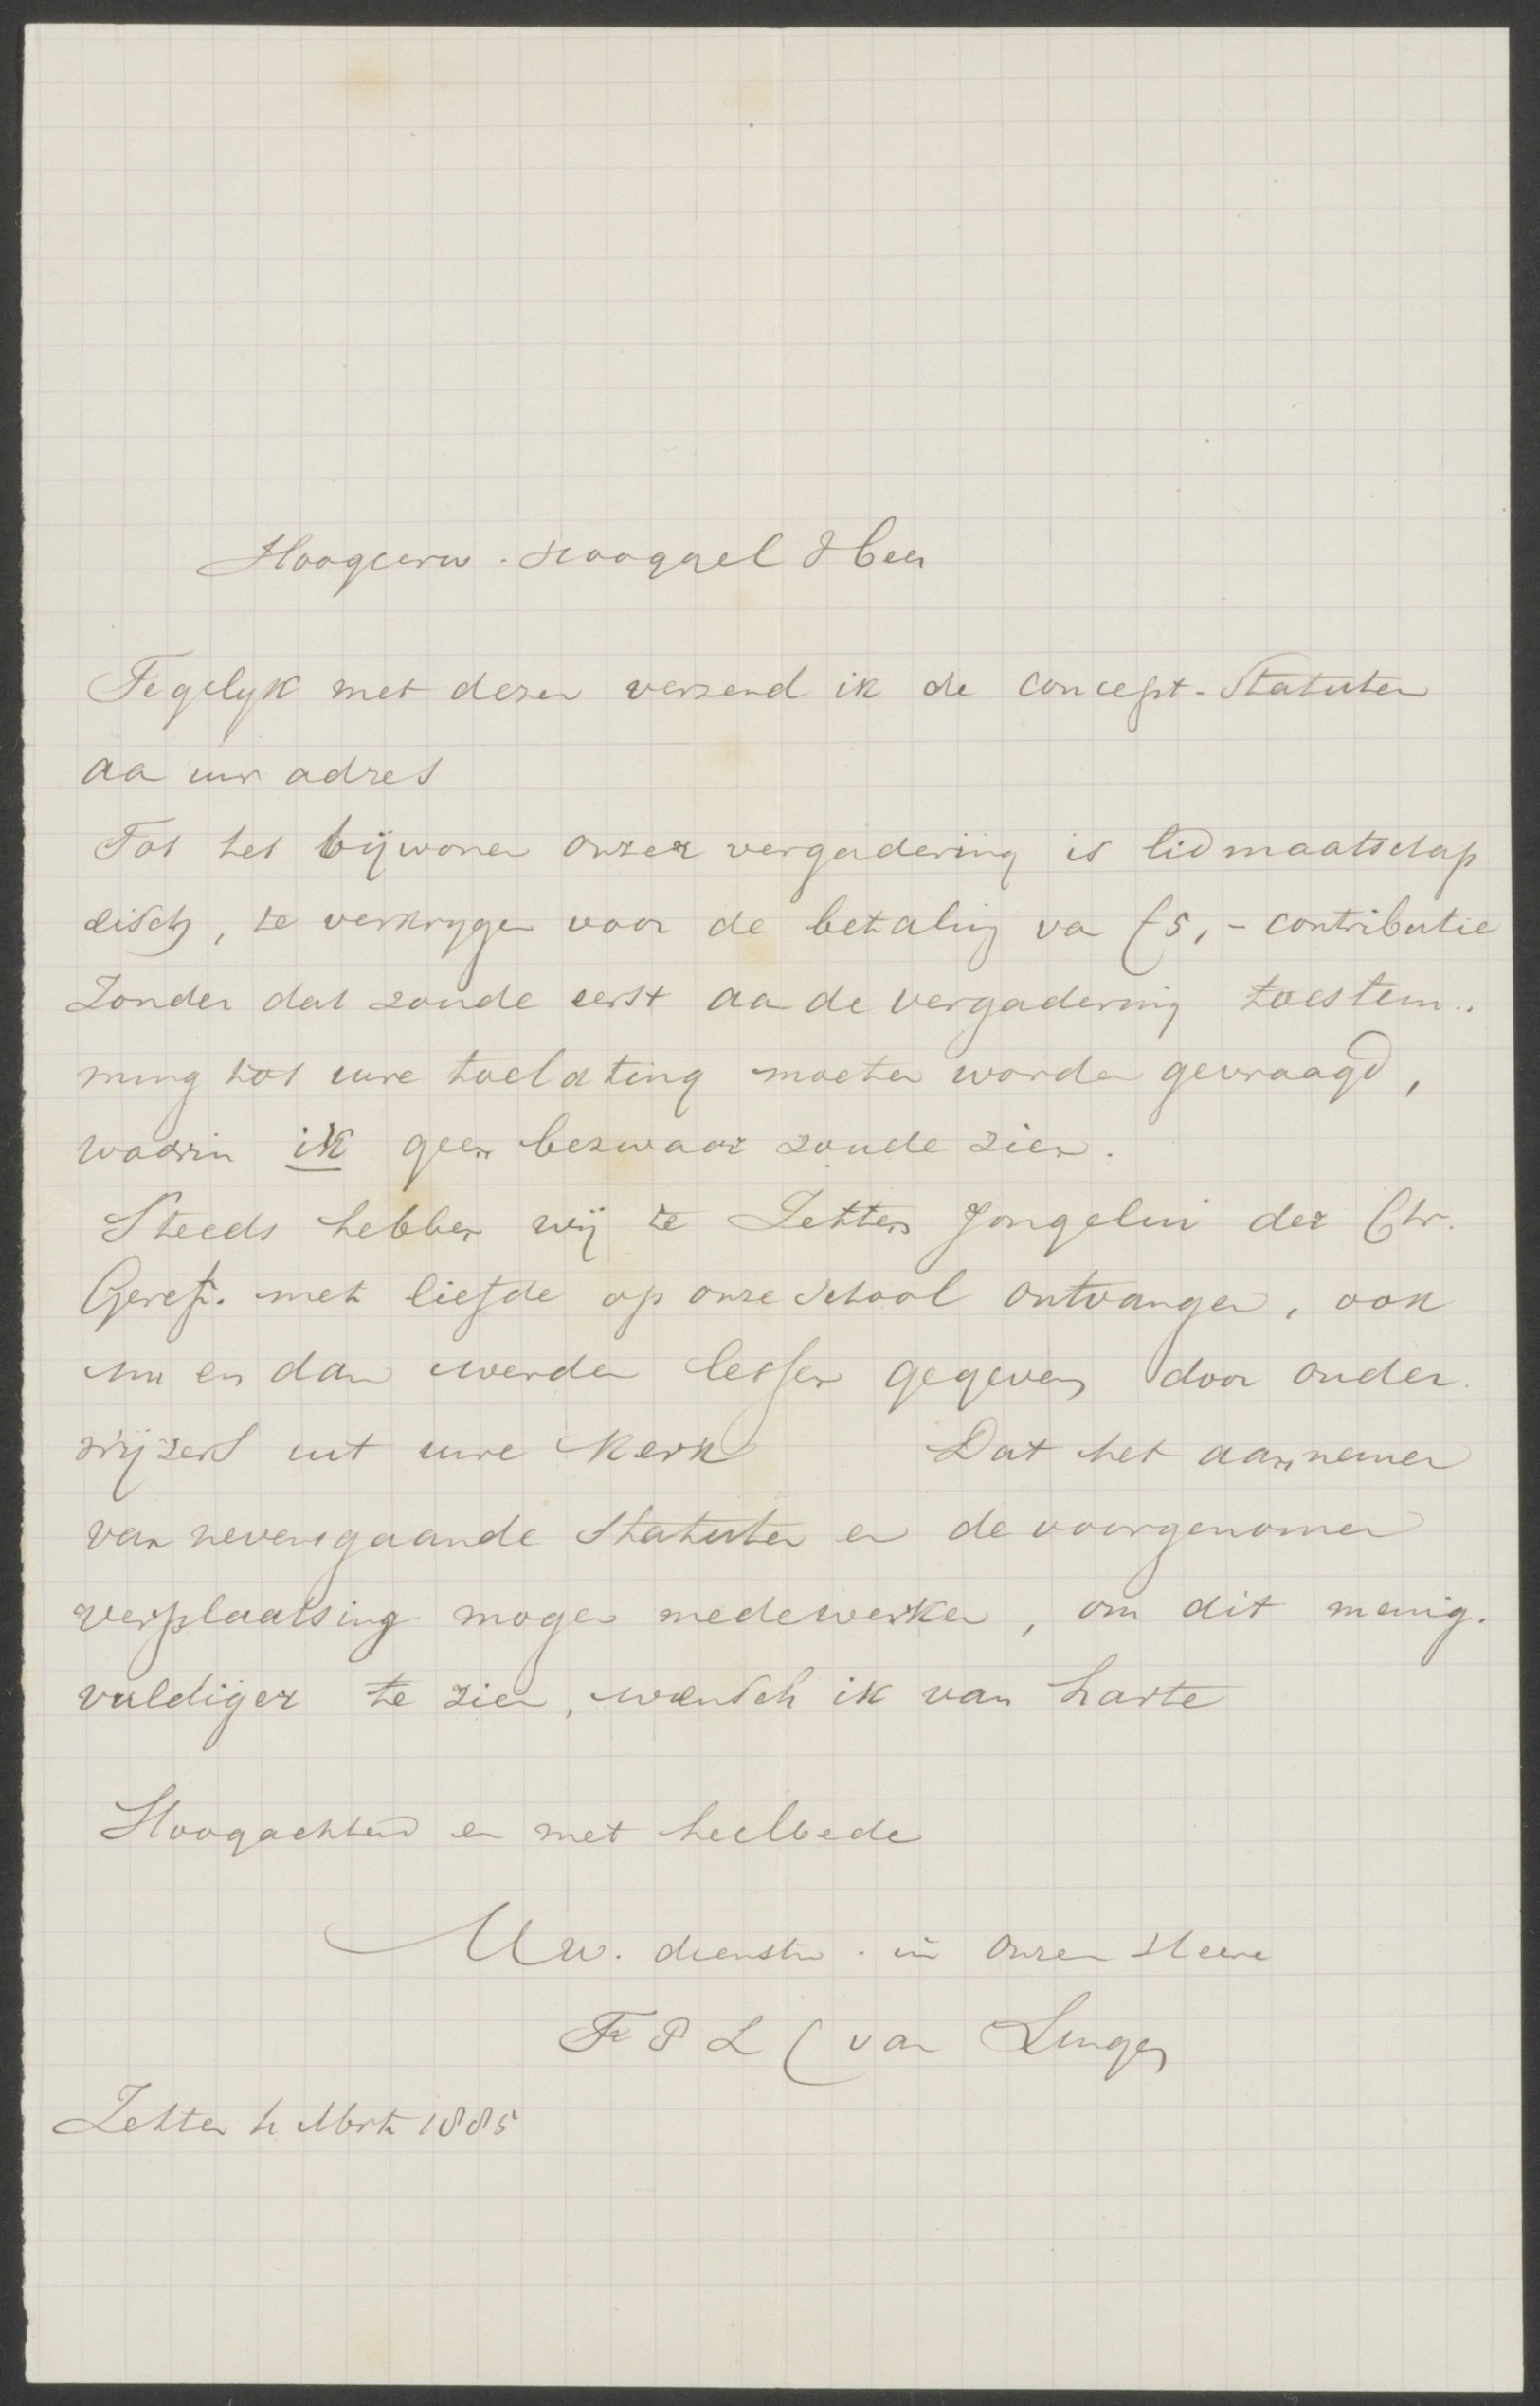 Hoogeerw. Hooggel Heer
Tegelyk met dezen verzend ik de concept-Statuten
aa uw adres
Tot het bijwonen onzer vergadering is lidmaatschap
eisch, te verkrygen voor de betaling va f 5,- contributie
Zonder dat zoude eerst aa de vergadering toestem-
ming tot uwe toelating moeten worden gevraagd,
waarin ik geen bezwaar zoude zien.
Steeds hebben wij te Zetten Jongelui der Chr.
Geref. met liefde op onze School ontvangen, ook
nu en dan werden lessen gegeven door onder-
wijzers uit uwe Kerk Dat het aannemen
van nevensgaande Statuten en de voorgenomen
verplaatsing mogen medewerken, om dit menig-
vuldiger te zien, wensch ik van harte
Hoogachtend en met heelbede
Uw. dienstw. in onzen Heere
F P L C van Lingen
Zetten Mrt 1885